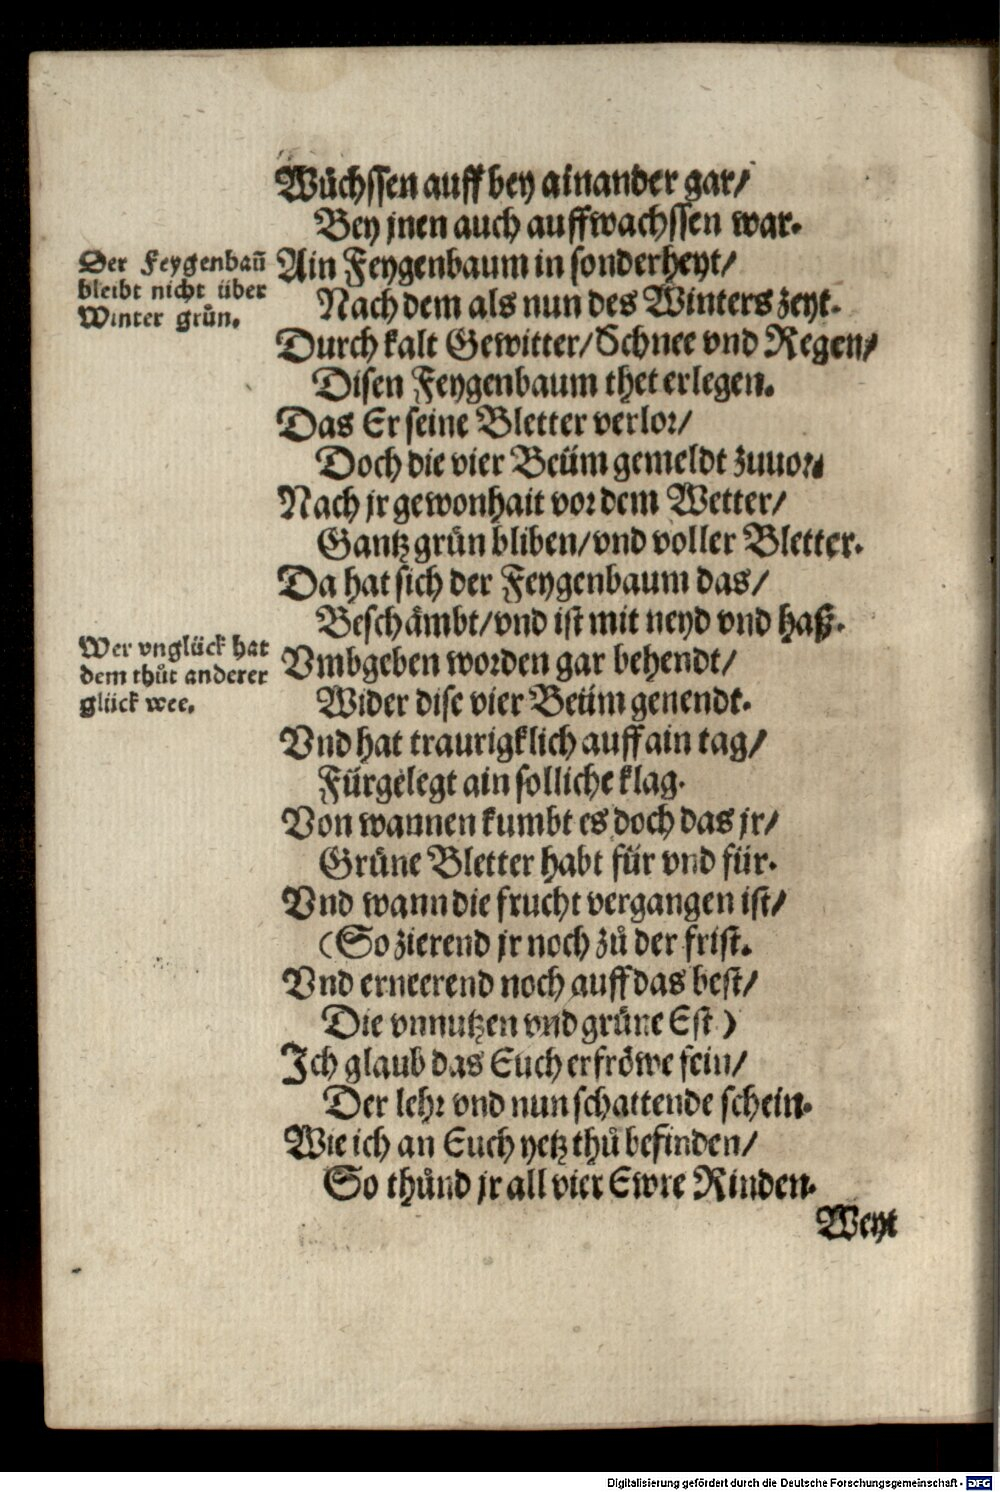 Wůchssen auff bey ainander gar/
Bey jnen auch auffwachssen war.
Der Feygenbaū
bleibt nicht über
Winter grůn.
Ain Feygenbaum in sonderheyt/
Nach dem als nun des Winters zeyt.
Durch kalt Gewitter/Schnee vnd Regen/
Disen Feygenbaum thet erlegen.
Das Er seine Bletter verlor/
Doch die vier Beüm gemeldt zuuor.
Nach jr gewonhait vor dem Wetter/
Gantz grün bliben/vnd voller Bletter.
Da hat sich der Feygenbaum das/
Beschämbt/vnd ist mit neyd vnd haß.
Wer vnglück hat
dem thůt anderer
glück wee.
Vmbgeben worden gar behendt/
Wider dise vier Beüm genendt.
Vnd hat traurigklich auff ain tag/
Fürgelegt ain solliche klag.
Von wannen kumbt es doch das jr/
Grüne Bletter habt für vnd für.
Vnd wann die frucht vergangen ist/
(So zierend jr noch zů der frist.
Vnd erneerend noch auff das best/
Die vnnutzen vnd grüne Est)
Ich glaub das Euch erfröwe fein/
Der lehr vnd nun schattende schein.
Wie ich an Euch yetz thů befinden/
So thůnd jr all vier Ewre Rinden.
Weyt
Digitalisierung gefördert durch die Deutsche Forschungsgemeinschaft - DFG